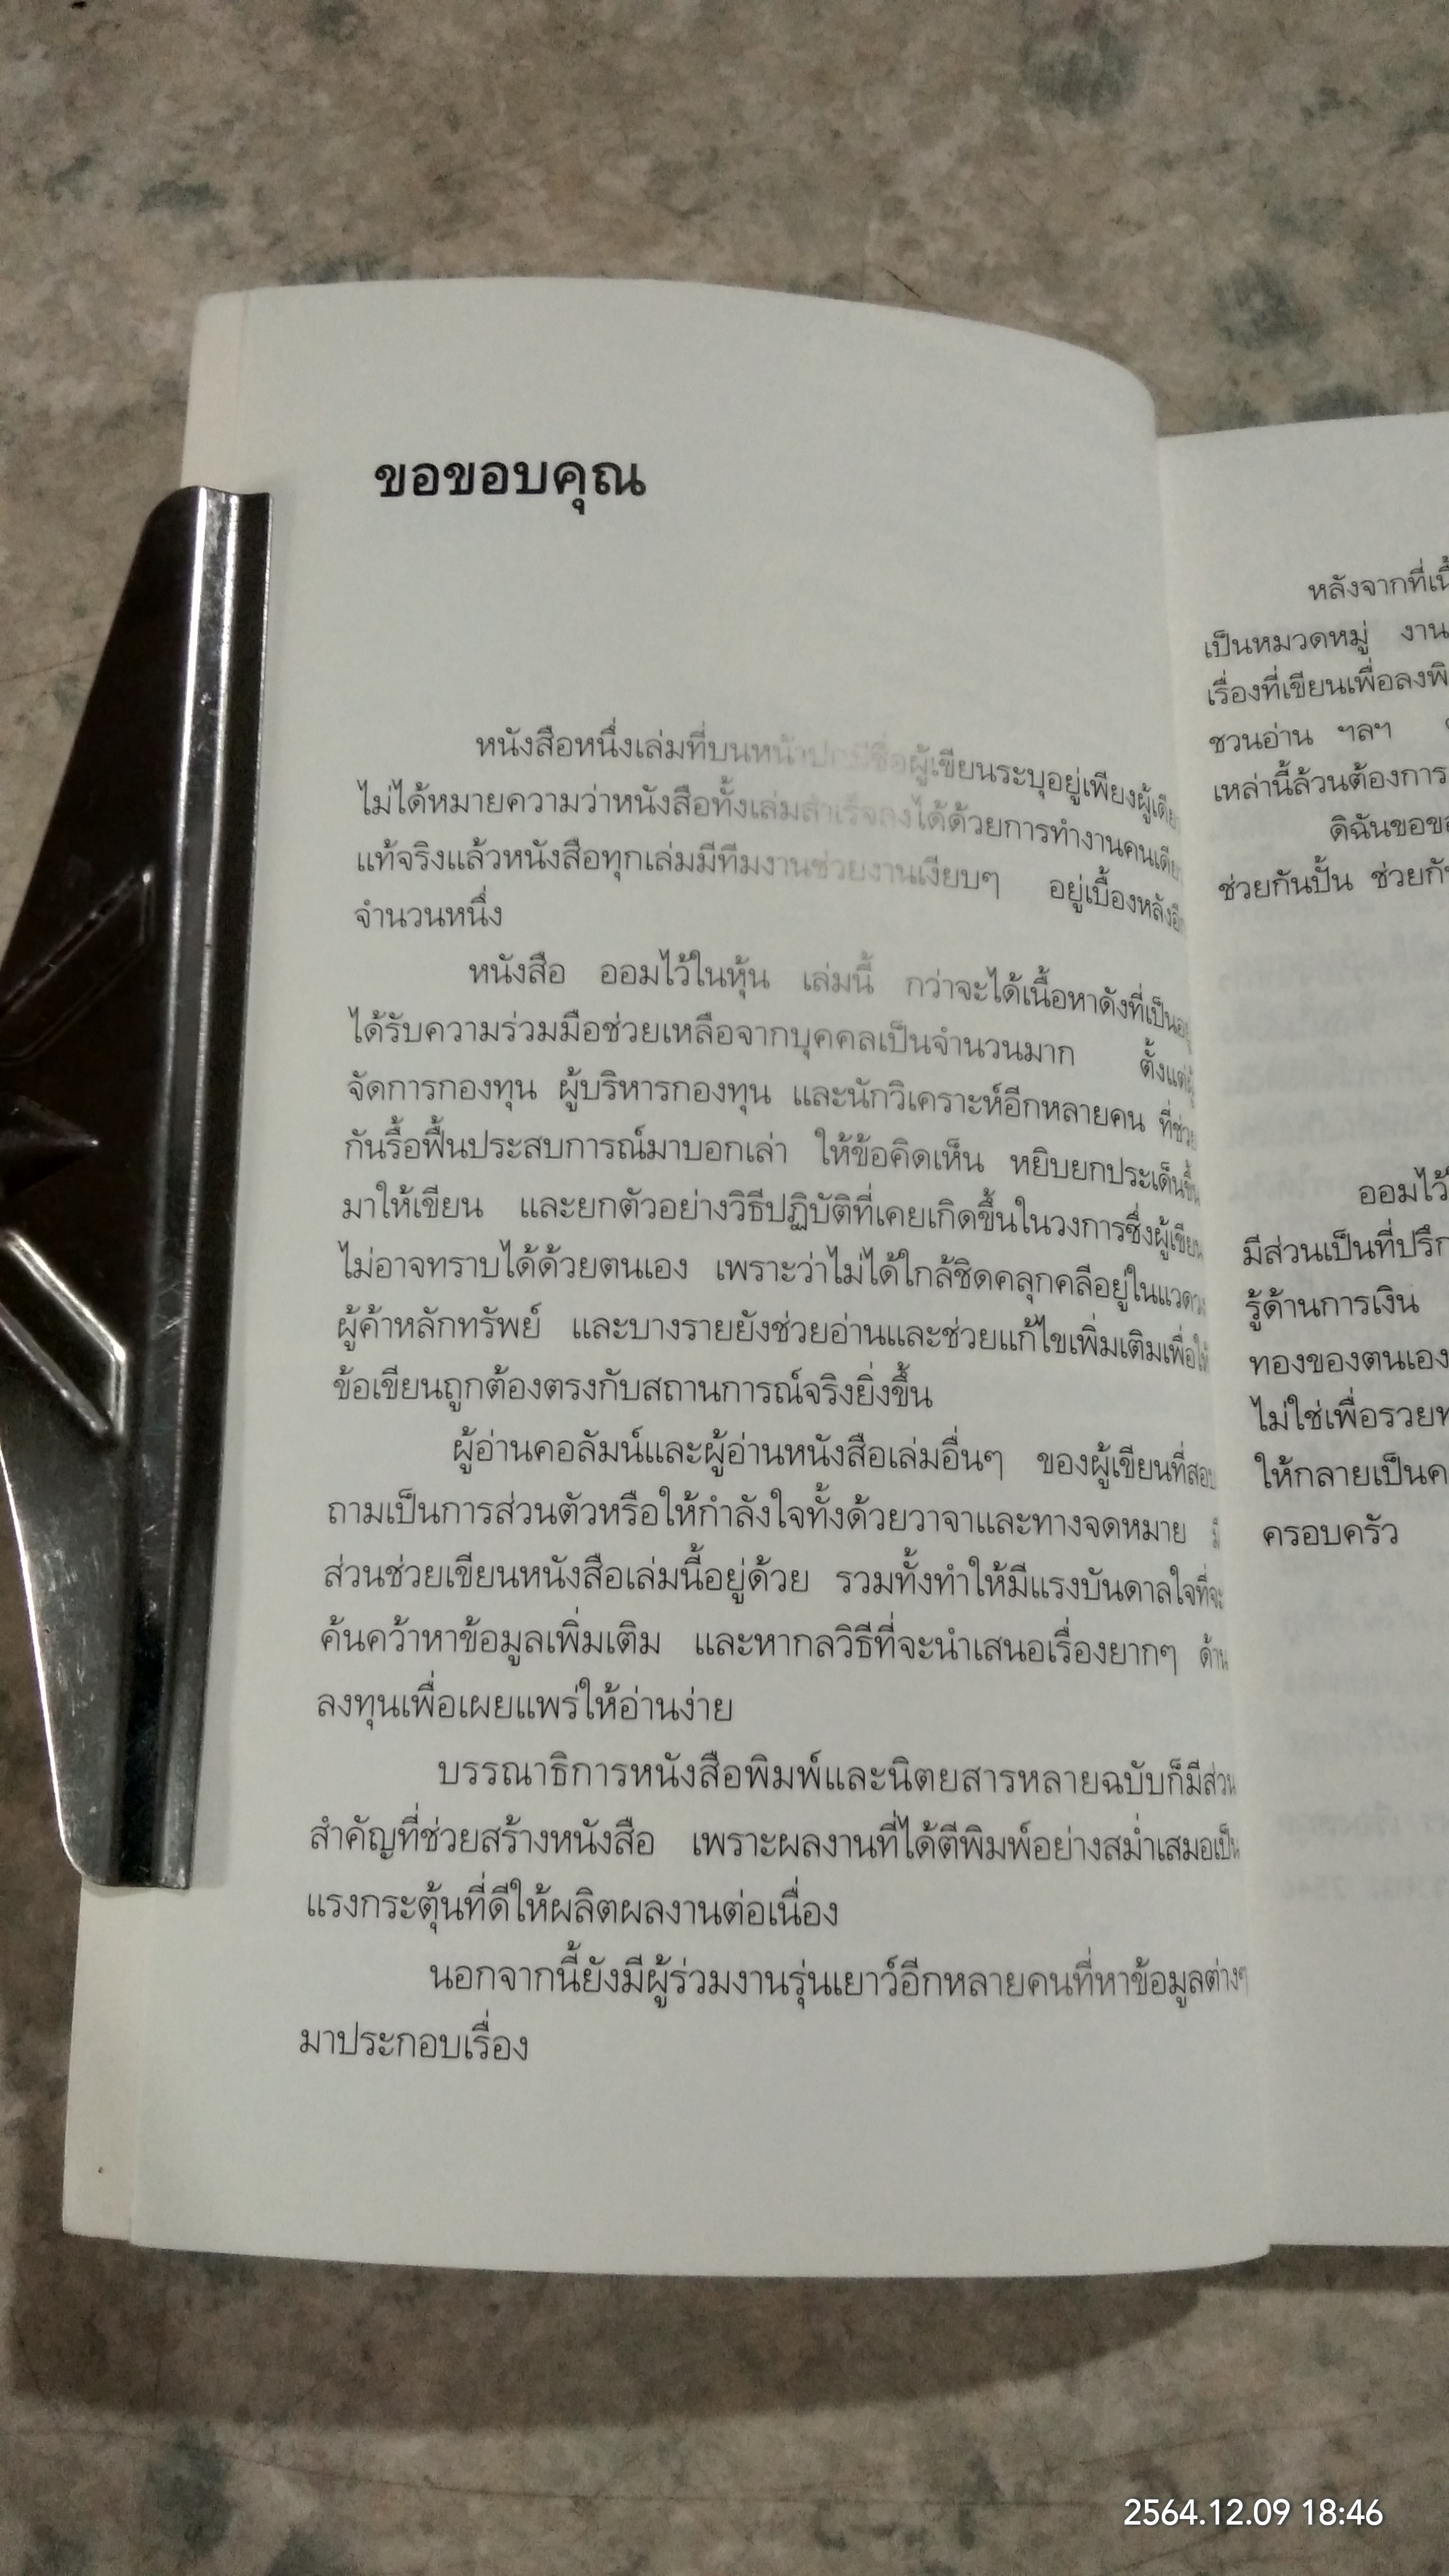 ขอขอบคุณ
หนังสือหนึ่งเล่มที่บนหน้าปกมีชื่อผู้เขียนระบุอยู่เพียงผู้เดียว
ไม่ได้หมายความว่าหนังสือทั้งเล่มสำเร็จลงได้ด้วยการทำงานคนเดียว
แท้จริงแล้วหนังสือทุกเล่มมีทีมงานช่วยงานเงียบๆ อยู่เบื้องหลังอีก
จำนวนหนึ่ง
หนังสือ ออมไว้ในหุ้น เล่มนี้ กว่าจะได้เนื้อหาดังที่เป็นอยู่
ได้รับความร่วมมือช่วยเหลือจากบุคคลเป็นจำนวนมาก ตั้งแต่ผู้
จัดการกองทุน ผู้บริหารกองทุน และนักวิเคราะห์อีกหลายคน ที่ช่วย
กันรื้อฟื้นประสบการณ์มาบอกเล่า ให้ข้อคิดเห็น หยิบยกประเด็นขึ้น
มาให้เขียน และยกตัวอย่างวิธีปฏิบัติที่เคยเกิดขึ้นในวงการซึ่งผู้เขียน
ไม่อาจทราบได้ด้วยตนเอง เพราะว่าไม่ได้ใกล้ชิดคลุกคลีอยู่ในแวดวง
ผู้ค้าหลักทรัพย์ และบางรายยังช่วยอ่านและช่วยแก้ไขเพิ่มเติมเพื่อให้
ข้อเขียนถูกต้องตรงกับสถานการณ์จริงยิ่งขึ้น
ผู้อ่านคอลัมน์และผู้อ่านหนังสือเล่มอื่นๆ ของผู้เขียนที่สอบ
ถามเป็นการส่วนตัวหรือให้กำลังใจทั้งด้วยวาจาและทางจดหมาย มี
ส่วนช่วยเขียนหนังสือเล่มนี้อยู่ด้วย รวมทั้งทำให้มีแรงบันดาลใจที่จะ
ค้นคว้าหาข้อมูลเพิ่มเติม และหากลวิธีที่จะนำเสนอเรื่องยากๆ ด้าน
ลงทุนเพื่อเผยแพร่ให้อ่านง่าย
บรรณาธิการหนังสือพิมพ์และนิตยสารหลายฉบับก็มีส่วน
สำคัญที่ช่วยสร้างหนังสือ เพราะผลงานที่ได้ตีพิมพ์อย่างสม่ำเสมอเป็น
แรงกระตุ้นที่ดีให้ผลิตผลงานต่อเนื่อง
นอกจากนี้ยังมีผู้ร่วมงานรุ่นเยาว์อีกหลายคนที่หาข้อมูลต่างๆ
มาประกอบเรื่อง
หลังจากที่
เป็นหมวดหมู่ งาน
เรื่องที่เขียนเพื่อลงพิ
ชวนอ่าน ฯลฯ
เหล่านี้ล้วนต้องการ
ดิฉันขอข
ช่วยกันปั้น ช่วยกั
ออมไว้
มีส่วนเป็นที่ปรึก
รู้ด้านการเงิน
ทองของตนเอง
ไม่ใช่เพื่อรวย
ให้กลายเป็นค
ครอบครัว
2564.12.09 18:46